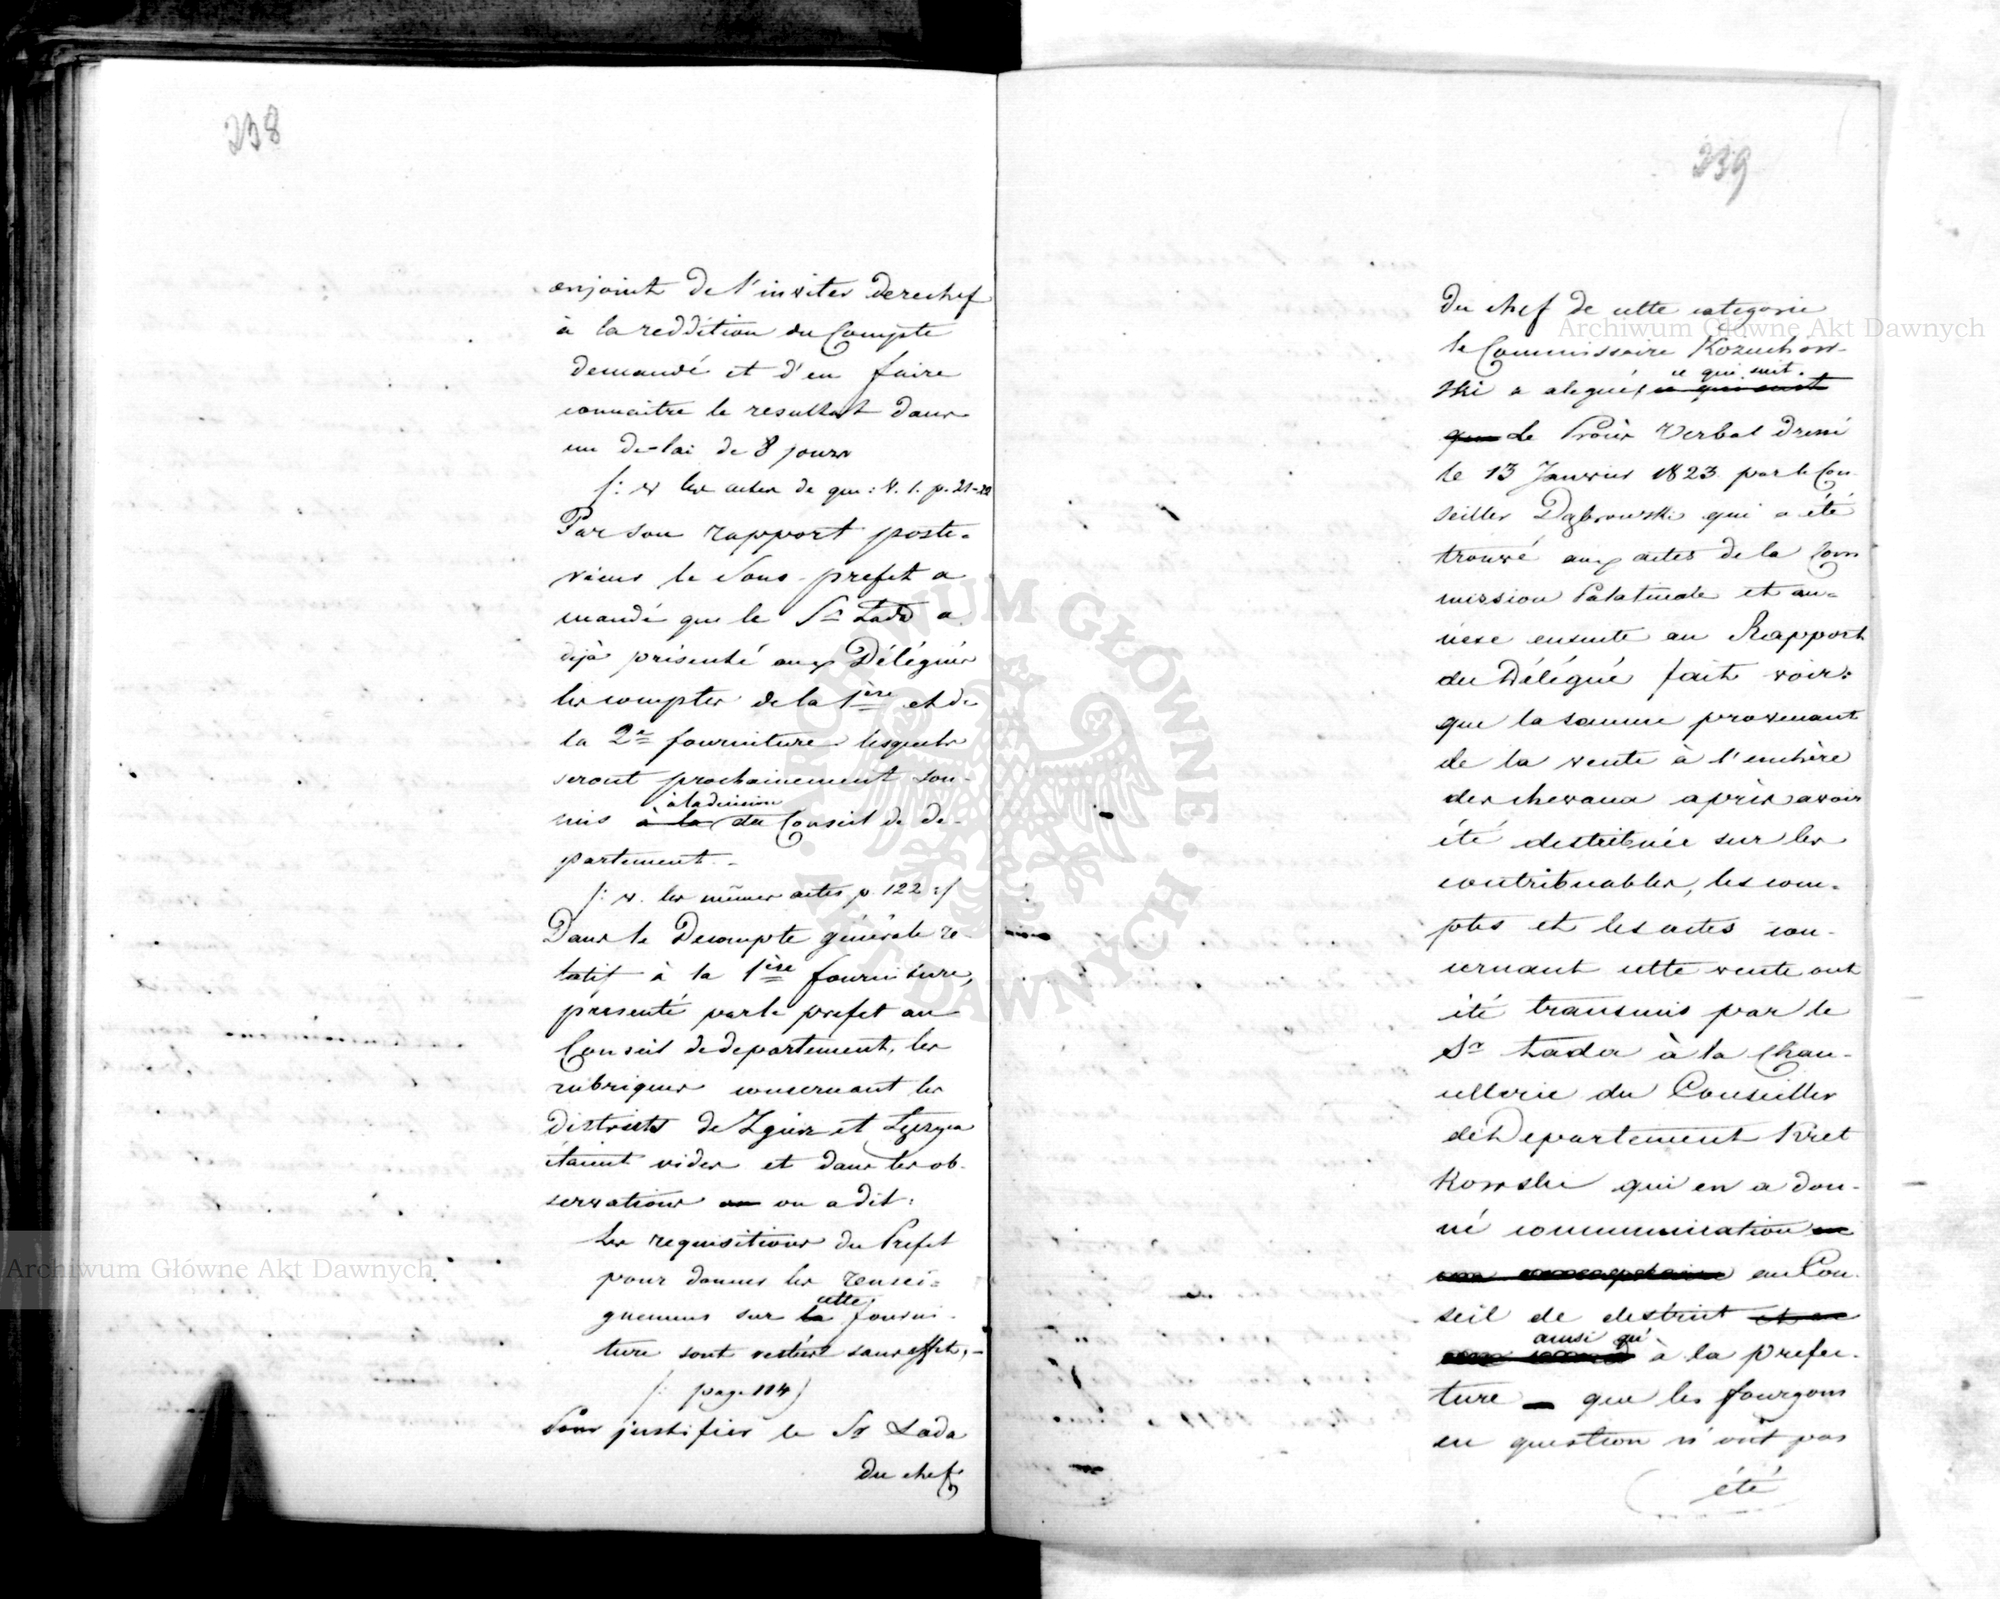 238
enjoint de l'inviter derechef
à la reddition du Compte
demandé et d'en faire
connaitre le resultat dans
un de-lai de 8 jours
/: v les actes de que: V. 1. p. 21-22
Par son rapport poste-
rieur le Sous-prefet a
mandé que le Sr Łada a
déjà présenté aux Délégués
les comptes de la 1ère et de
la 2e fourniture lesquels
seront prochainement sou-
à la décision
mis à la du Conseil de de-
partement.-
/: v. les mêmes actes p. 122 :/
Dans le Decompte générale re-
latif à la 1ère fourniture,
présenté par le prefet au
Conseil de departement, les
rubriques concernant les
districts de Zgierz et Łęczyca
étaient vides et dans les ob-
servations on a dit:
Les requisitions du Prefet
pour donner les rensei-
cette
gnemens sur la fourni-
ture sont restées sans effet,-
/: page 114)
Pour justifier le Sr Lada
du chef
239
Du chef de cette categorie
le Commissaire Kozuchow-
ce qui suit.
ski a alegué, ce qui suit
que Le Procès Verbal dressé
le 13 Janvier 1823 par le Con-
seiller Dąbrowski qui a été
trouvé aux actes de la Com
mission Palatinale et an-
nexe ensuite au Rapport
du Délégué fait voir:
que la somme provenant
de la vente à l'enchère
des chevaux après avoir
été distribuée sur les
contribuables, les com-
ptes et les actes con-
cernant cette vente ont
été transmis par le
Sr Lada à la Chan-
cellerie du Conseiller
de Departement Kret
kowski qui en a don-
né communication
au Con-
seil de district et
ainsi qu'
à la prefec-
ture - que les fourgons
en question n'ont pas
été
Archiwum Główne Akt Dawnych
Archiwum Główne Akt Dawnych
ARCHIWUM GŁÓWNE · AKT DAWNYCH ·